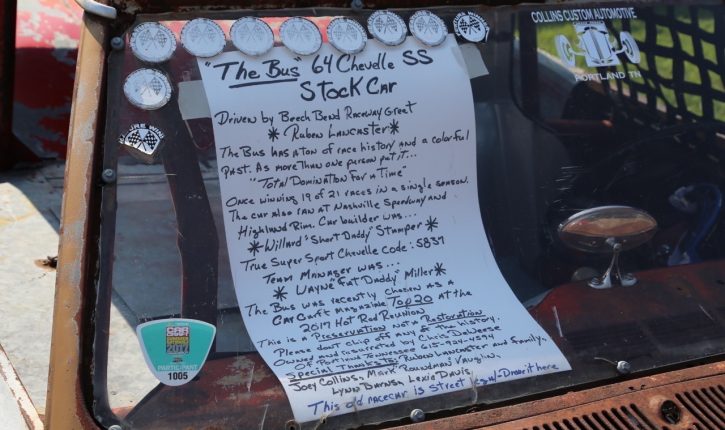 COLLINS CUSTOM AUTOMOTIVE
PORTLAND TN
"The Bus" 64 Chevelle SS
Stock Car
Driven by Beech Bend Raceway Great
* Ruben Lancaster *
The Bus has a ton of race history and a colorful
Past. As more than one person put it...
"Total Domination for a Time"
Once winning 19 of 21 races in a single season.
The car also ran at Nashville Speedway and
Highland Rim. Car builder was...
* Willard "Short Daddy" Stamper *
True Super Sport Chevelle Code: 5837
Team Manager was...
* Wayne "Fat Daddy" Miller *
The Bus was recently chosen as a
Car Craft Magazine Top 20 at the
2017 Hot Rod Reunion
This is a Preservation not a Restoration
Please don't clip off any of the history.
Owned and insured by Chris DeWeese
Of Portland Tennessee 615-924-4594
Special Thanks To: Ruben Lancaster and family,
Joey Collins, Mark Roundman Vaughn,
Lynn Barnes, Lexie Davis,
This old racecar is street legal - Drove it here
CAR CRAFT
2017
PARTICIPANT
1005